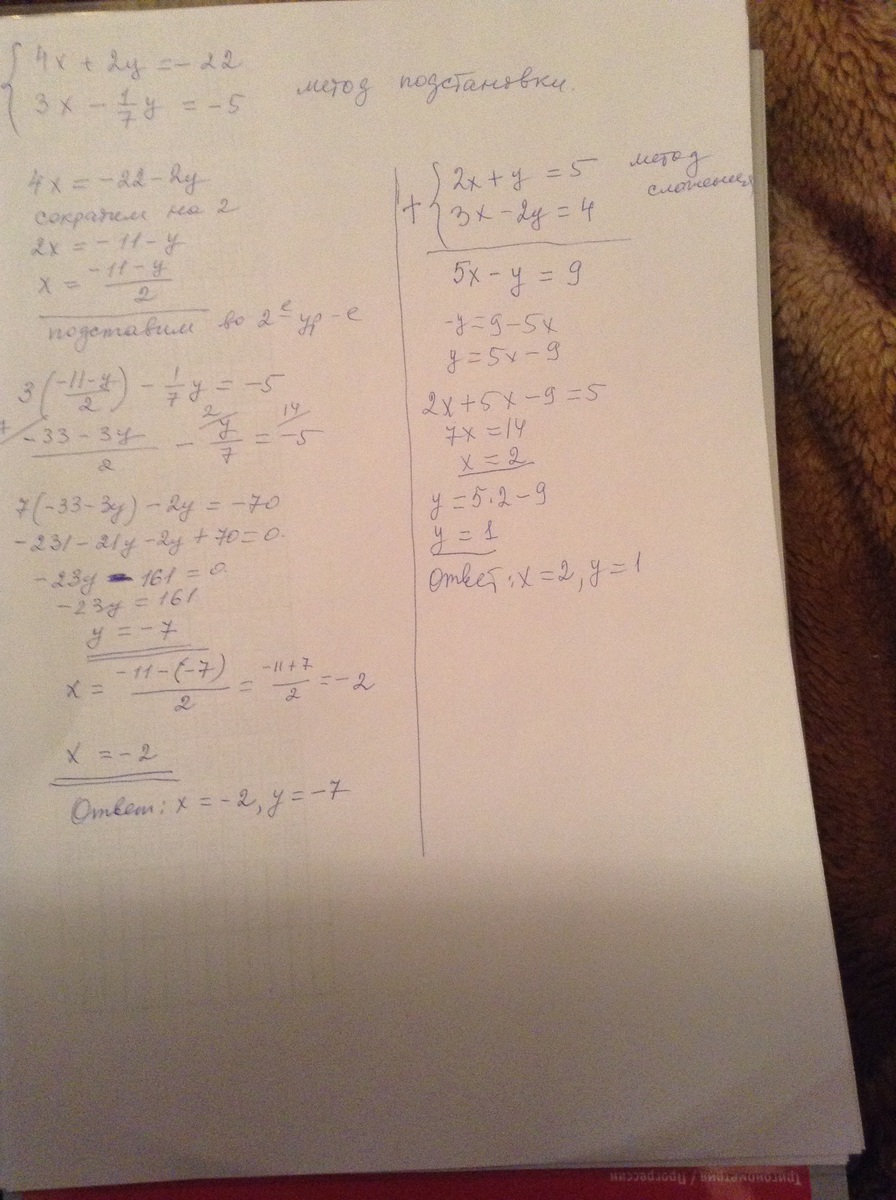 4x + 2y = -22
3x - 1/7 y = -5
метод подстановки.
4x = -22 - 2y
сократим на 2
2x = -11 - y
x = (-11 - y)/2
подставим во 2е ур-е
3((-11-y)/2) - 1/7 y = -5
7/ (-33 - 3y)/2 - 2/ y/7 = 14/ -5
7(-33-3y) - 2y = -70
-231 - 21y - 2y + 70 = 0.
-23y - 161 = 0.
-23y = 161
y = -7
x = (-11-(-7))/2 = (-11+7)/2 = -2
x = -2
Ответ: x = -2, y = -7
метод
сложения
+ 2x + y = 5
3x - 2y = 4
5x - y = 9
-y = 9 - 5x
y = 5x - 9
2x + 5x - 9 = 5
7x = 14
x = 2
y = 5·2 - 9
y = 1
Ответ: x = 2, y = 1
Тригонометрия / Прогрессии